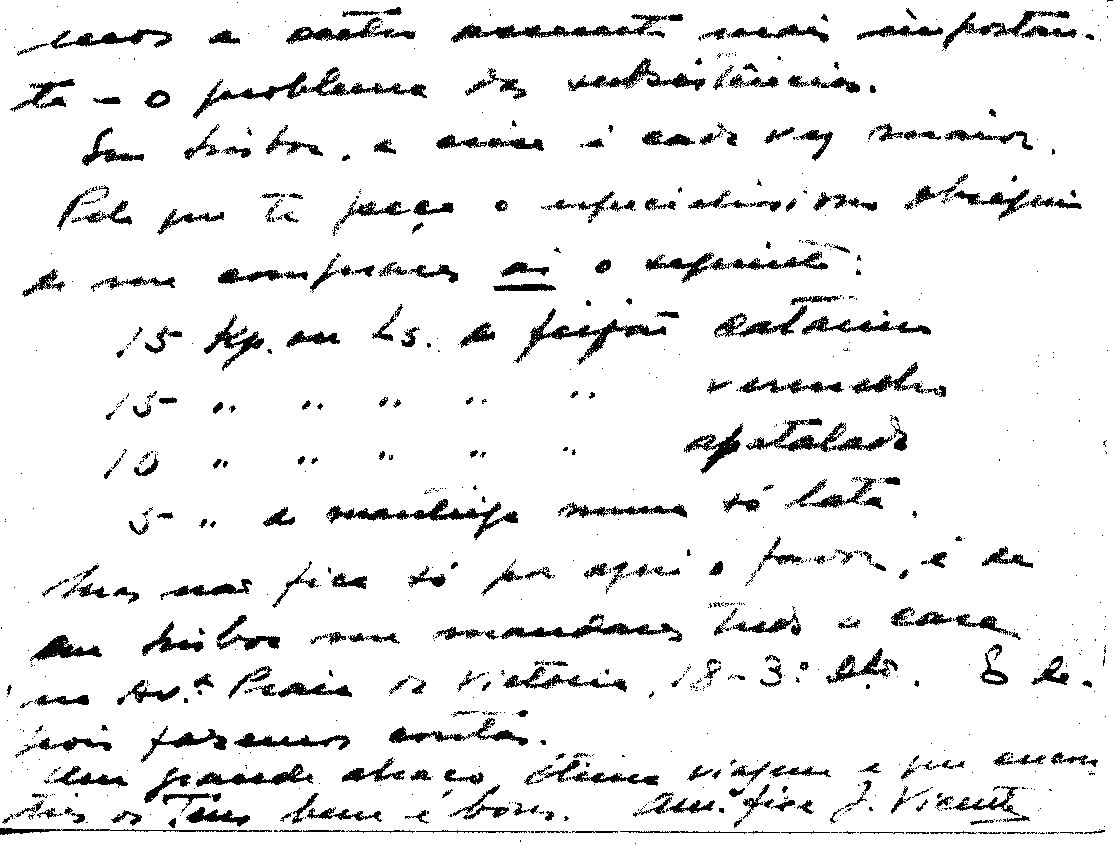 a outro assunto mais importan-
te - o problema das subsistências.
Em Lisboa, a crise é cada vez maior.
Pelo que te peço o especialissimo obséquio
de me comprares aí o seguinte:
15 Kg. ou Ls. de feijão catarino
15 " " " " " vermelho
10 " " " " " apatalado
5 " de manteiga numa só lata.
Mas não fica só por aqui o favor, é de
em Lisboa me mandares tudo a casa
na Av.ª Praia da Victoria, 18-3.º Dto. E de-
pois fazemos contas.
Um grande abraço, ótima viagem e que encon-
tres os Teus bem e bons. Am.º J. Vicente